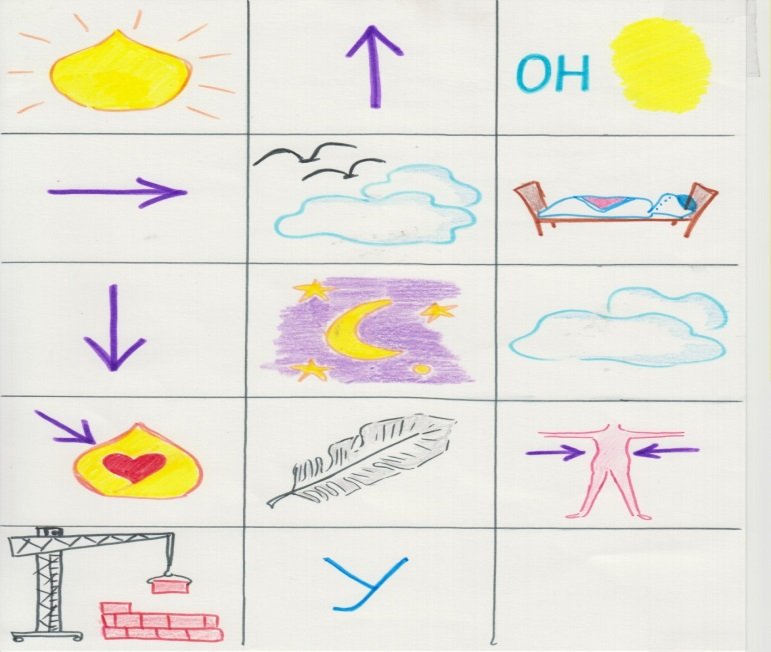 ОН
У